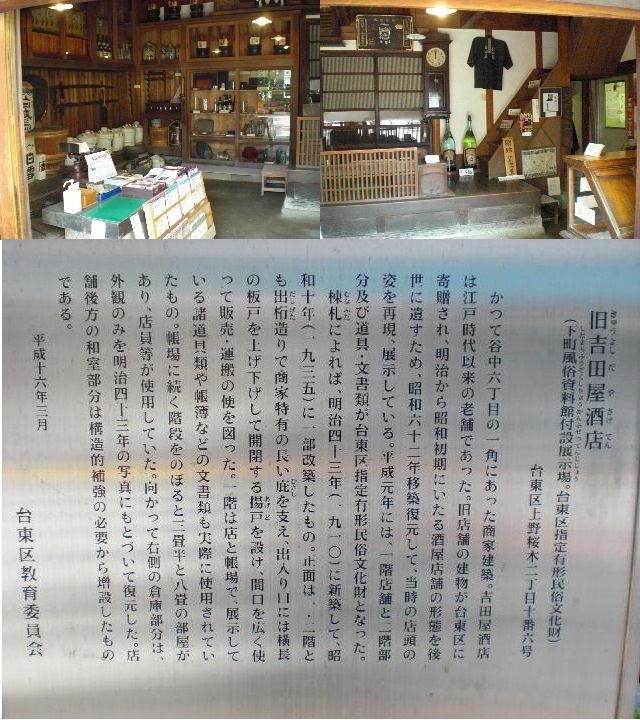 旧吉田屋酒店
きゅうよしだやさけてん
(下町風俗資料館付設展示場。台東区指定有形民俗文化財)
したまちふうぞくしりょうかんふせつてんじじょう
台東区上野桜木二丁目十番六号
かつて谷中六丁目の一角にあった商家建築。吉田屋酒店
は江戸時代以来の老舗であった。旧店舗の建物が台東区に
寄贈され、明治から昭和初期にいたる酒屋店舗の形態を後
世に遺すため、昭和六十二年移築復元して、当時の店頭の
姿を再現、展示している。平成元年には、一階店舗と二階部
分及び道具・文書類が台東区指定有形民俗文化財となった。
棟札によれば、明治四十三年(一九一〇)に新築して、昭
むなふだ
和十年(一九三五)に一部改築したもの。正面は一・二階と
も出桁造りで商家特有の長い庇を支え、出入り口には横長
だしげた
ひさし
の板戸を上げ下げして開閉する揚戸を設け、間口を広く使
あげど
って販売・運搬の便を図った。一階は店と帳場で、展示して
いる諸道具類や帳簿などの文書類も実際に使用されてい
たもの。帳場に続く階段をのぼると二畳半と八畳の部屋が
あり、店員等が使用していた。向かって右側の倉庫部分は、
外観のみを明治四十三年の写真にもとづいて復元した。店
舗後方の和室部分は構造的補強の必要から増設したもの
である。
平成十六年三月
台東区教育委員会